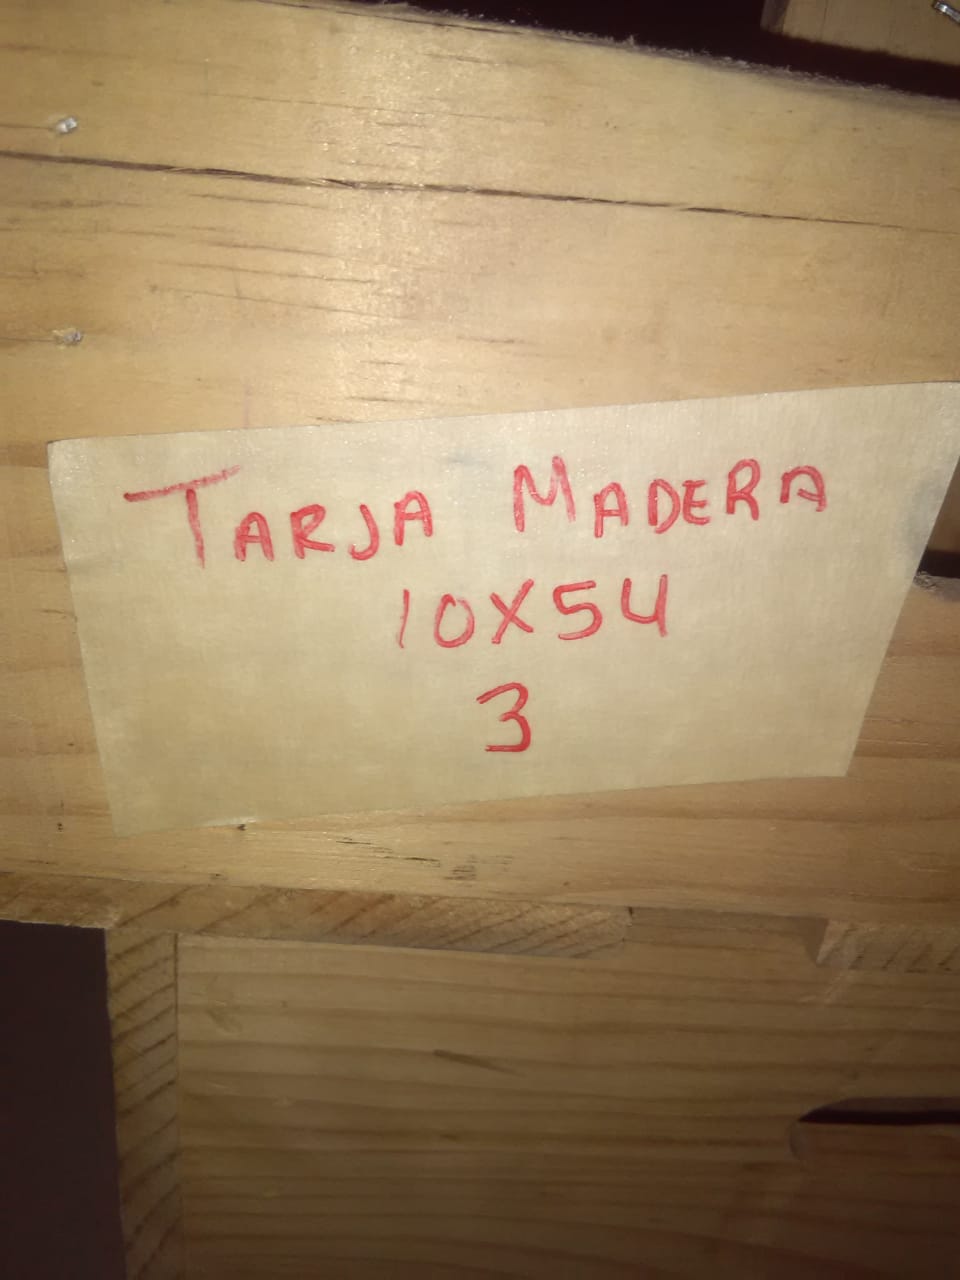 TARJA MADERA
10X54
3